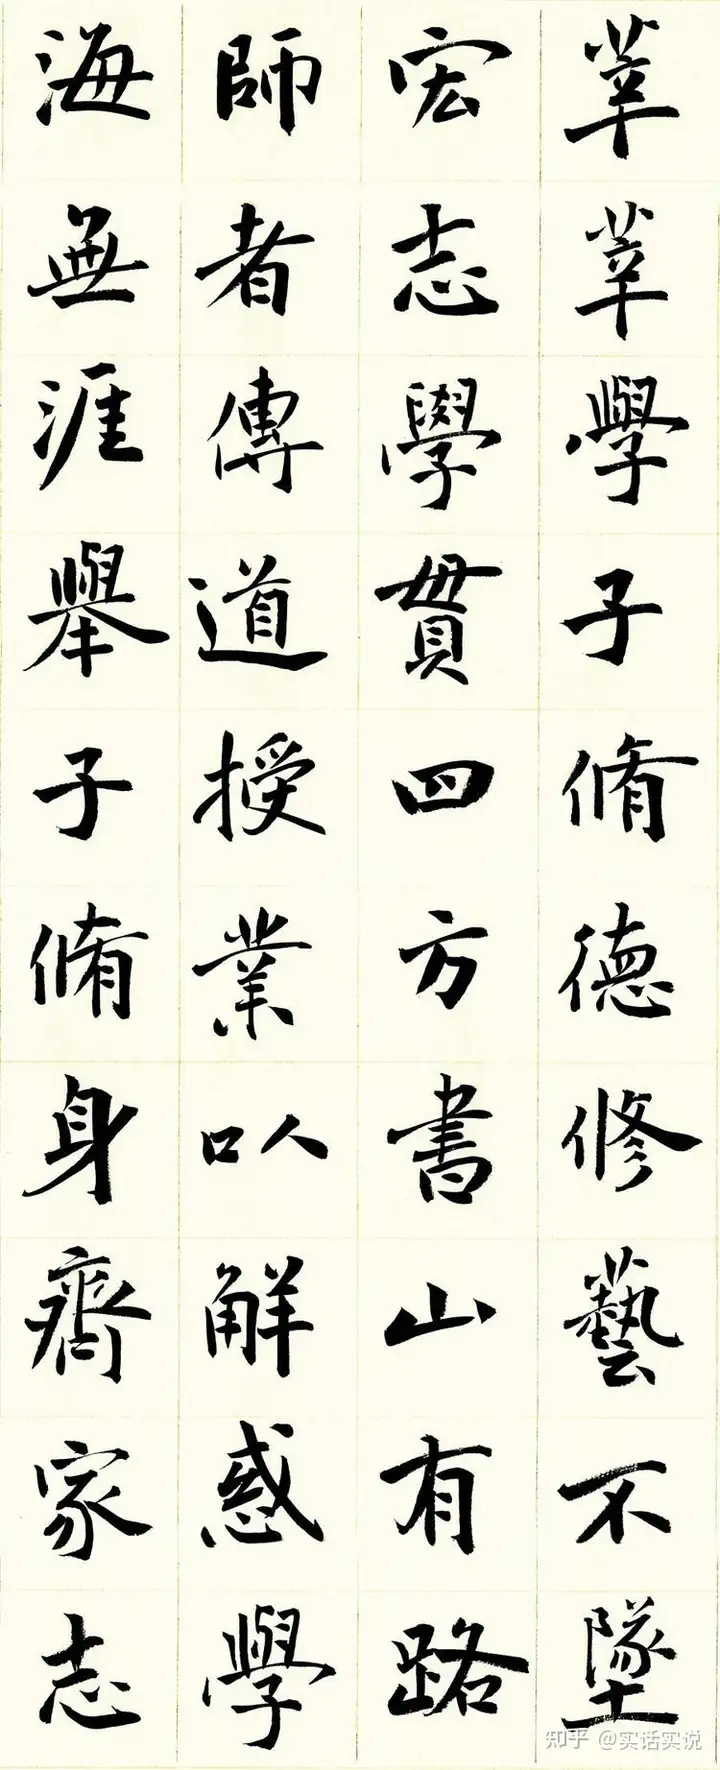 莘莘學子脩德修藝不墜
宏志學貫四方書山有路
師者傳道授業以解惑學
海無涯舉子脩身齊家志
知乎 @实话实说